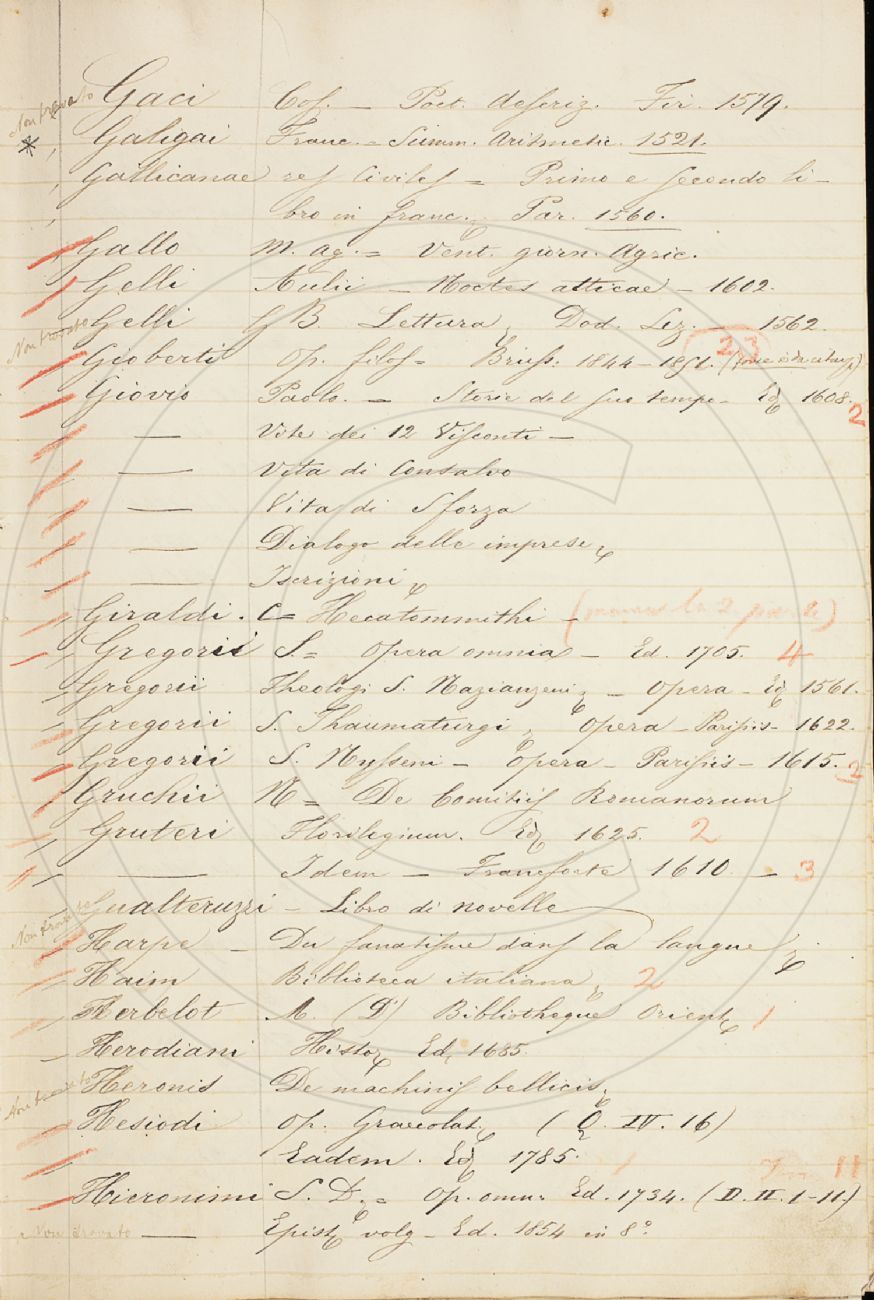 Non trovato Gaci Cos. — Poet. descriz. Fir. 1579.
* Galigai Franc. = Summ. Aritmetic. 1521.
Gallicanae res Civiles = Primo e secondo li-
bro in franc. Par. 1560.
Gallo M. Ag. = Vent. giorn. Agric.
Gelli Aulii — Noctes atticae — 1602.
Non trovato Gelli G B. Lettura Dod. Lez. — 1562.
Gioberti Op. filos = Bruss: 1844-1851. 23
Giovio Paolo. — Storie del suo tempo - Ed 1608. 2
— Vite dei 12 Visconti —
— Vita di Consalvo
— Vita di Sforza
— Dialogo delle imprese
— Iscrizioni
Giraldi. C = Hecatommithi — (manca la 2 parte)
Gregorii S. = Opera omnia — Ed. 1705. 4
Gregorii Theologi S. Nazianzeni — Opera - Ed 1561.
Gregorii S. Thaumaturgi Opera - Parisiis - 1622.
Gregorii S. Nysseni — Opera — Parisiis — 1615. 2
Gruchii N = De Comitiis Romanorum
Gruteri Florilegium. Ed 1625. 2
— Idem — Francforte 1610 — 3
Gualteruzzi — Libro di novelle
Non trovato Harpe — Du fanatisme dans la langue
Haim Biblioteca italiana 2
Herbelot M. (D') Bibliotheque Orient 1
Herodiani Histor Ed. 1685.
Non trovato Heronis De machinis bellicis
Hesiodi Op. Graecolat. (Q. IV. 16)
Eadem. Ed 1785.
Hieronimi S. D. = Op. omn. Ed. 1734. (D. II. 1-11.) 11
Non trovato — Epist volg - Ed. 1854 in 8°.